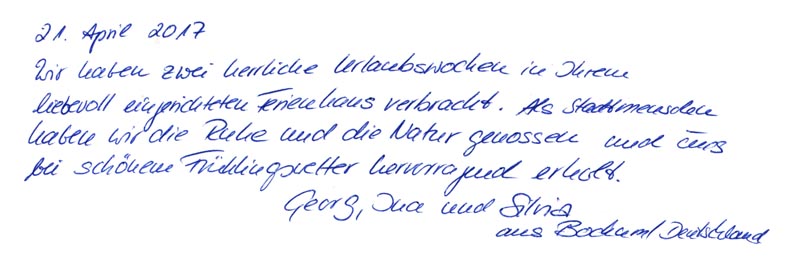 21. April 2017
Wir haben zwei herrliche Urlaubswochen in Ihrem
liebevoll eingerichteten Ferienhaus verbracht. Als Stadtmenschen
haben wir die Ruhe und die Natur genossen und uns
bei schönem Frühlingswetter hervorragend erholt.
Georg, Ina und Silvia
aus Bochum/Deutschland